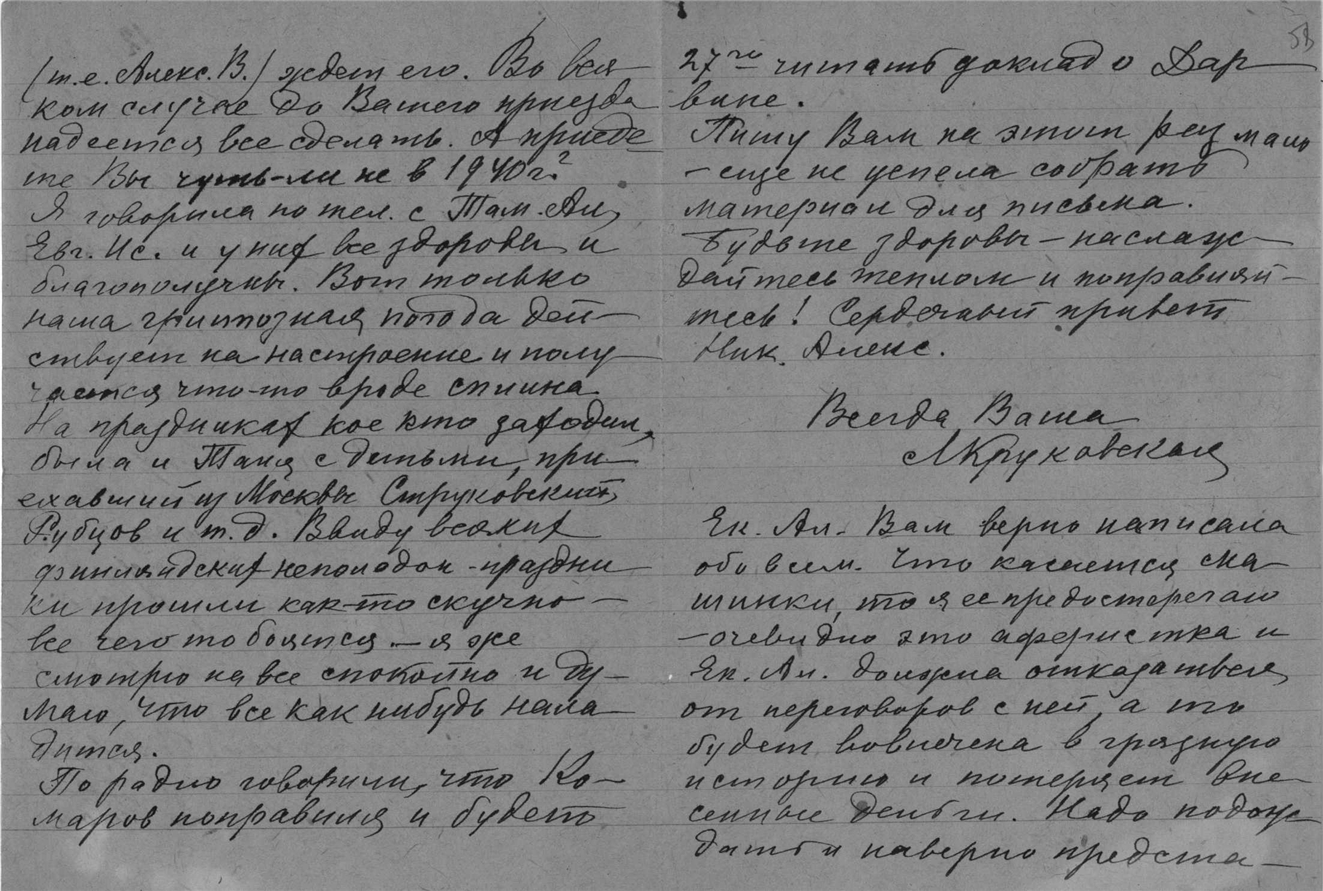 (т.е. Алекс. В.) ждет его. Во вся-
ком случае до Вашего приезда
надеется все сделать. А приеде-
те Вы чуть-ли не в 1940 г?
Я говорила по тел. с Там. Ал.,
Евг. Ис. и у них все здоровы и
благополучны. Вот только
наша гриппозная погода дей-
ствует на настроение и полу-
чается что-то вроде сплина.
На праздниках кое кто заходил,
была и Таня с детьми, при-
ехавший из Москвы Струковский,
Рубцов и т.д. Ввиду всяких
финляндских неполадок - праздни-
ки прошли как-то скучно -
все чего то боятся - я же
смотрю на все спокойно и ду-
маю, что все как нибудь нала-
дится.
По радио говорили, что Ко-
маров поправился и будет
53
27го читать доклад о Дар-
вине.
Пишу Вам на этот раз мало
- еще не успела собрать
материал для письма.
Будьте здоровы - наслаж-
дайтесь теплом и поправляй-
тесь! Сердечный привет
Ник. Алекс.
Всегда Ваша
ЛКруковская
Ек. Ал. Вам верно написала
обо всем. Что касается
то я ее предостерегаю
- очевидно это аферистка и
Ек. Ал. должна отказаться
от переговоров с ней, а то
будет вовлечена в грязную
историю и потеряет вне-
сенные деньги. Надо подож-
дать и наверно предста-